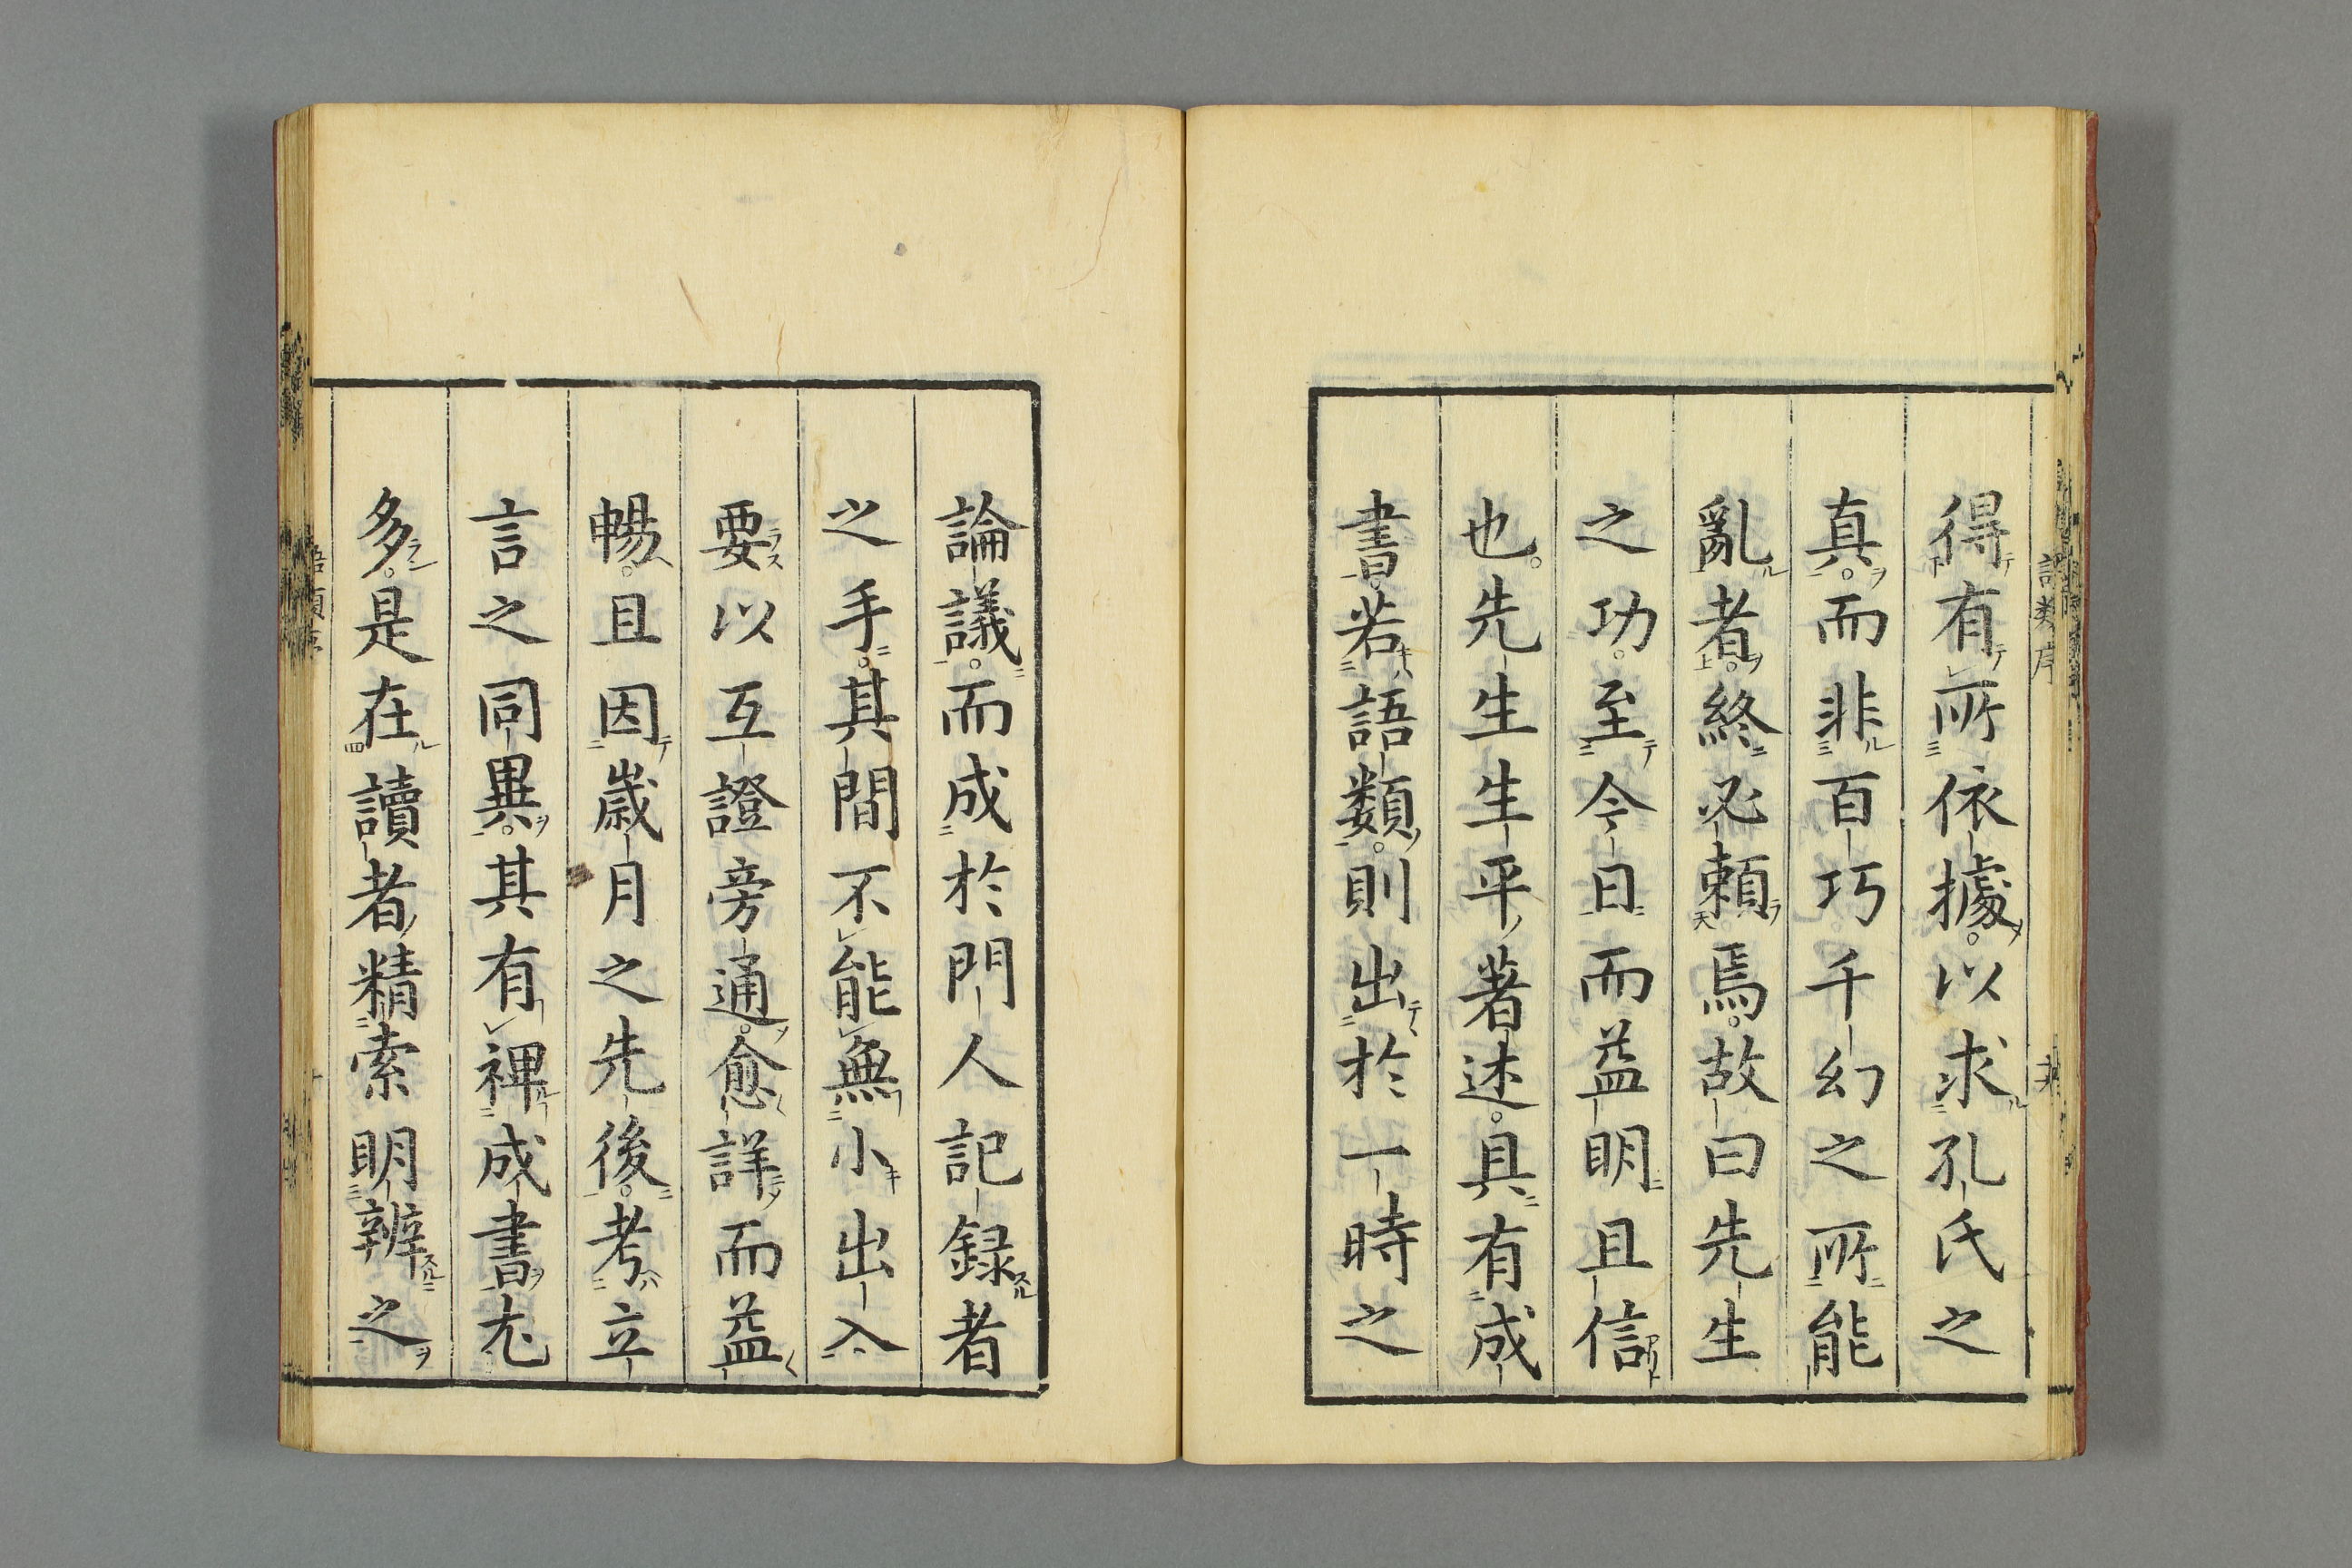 得有所依據以求孔氏之
真而非百巧千幻之所能
亂者終必頼焉故曰先生
之功至今日而益明且信
也先生生平著述具有成
書若語類則出於一時之
論議而成於門人記録者
之手其間不能無小出入
要以互證旁通愈詳而益
暢且因歳月之先後考立
言之同異其有裨成書尤
多是在讀者精索明辨之